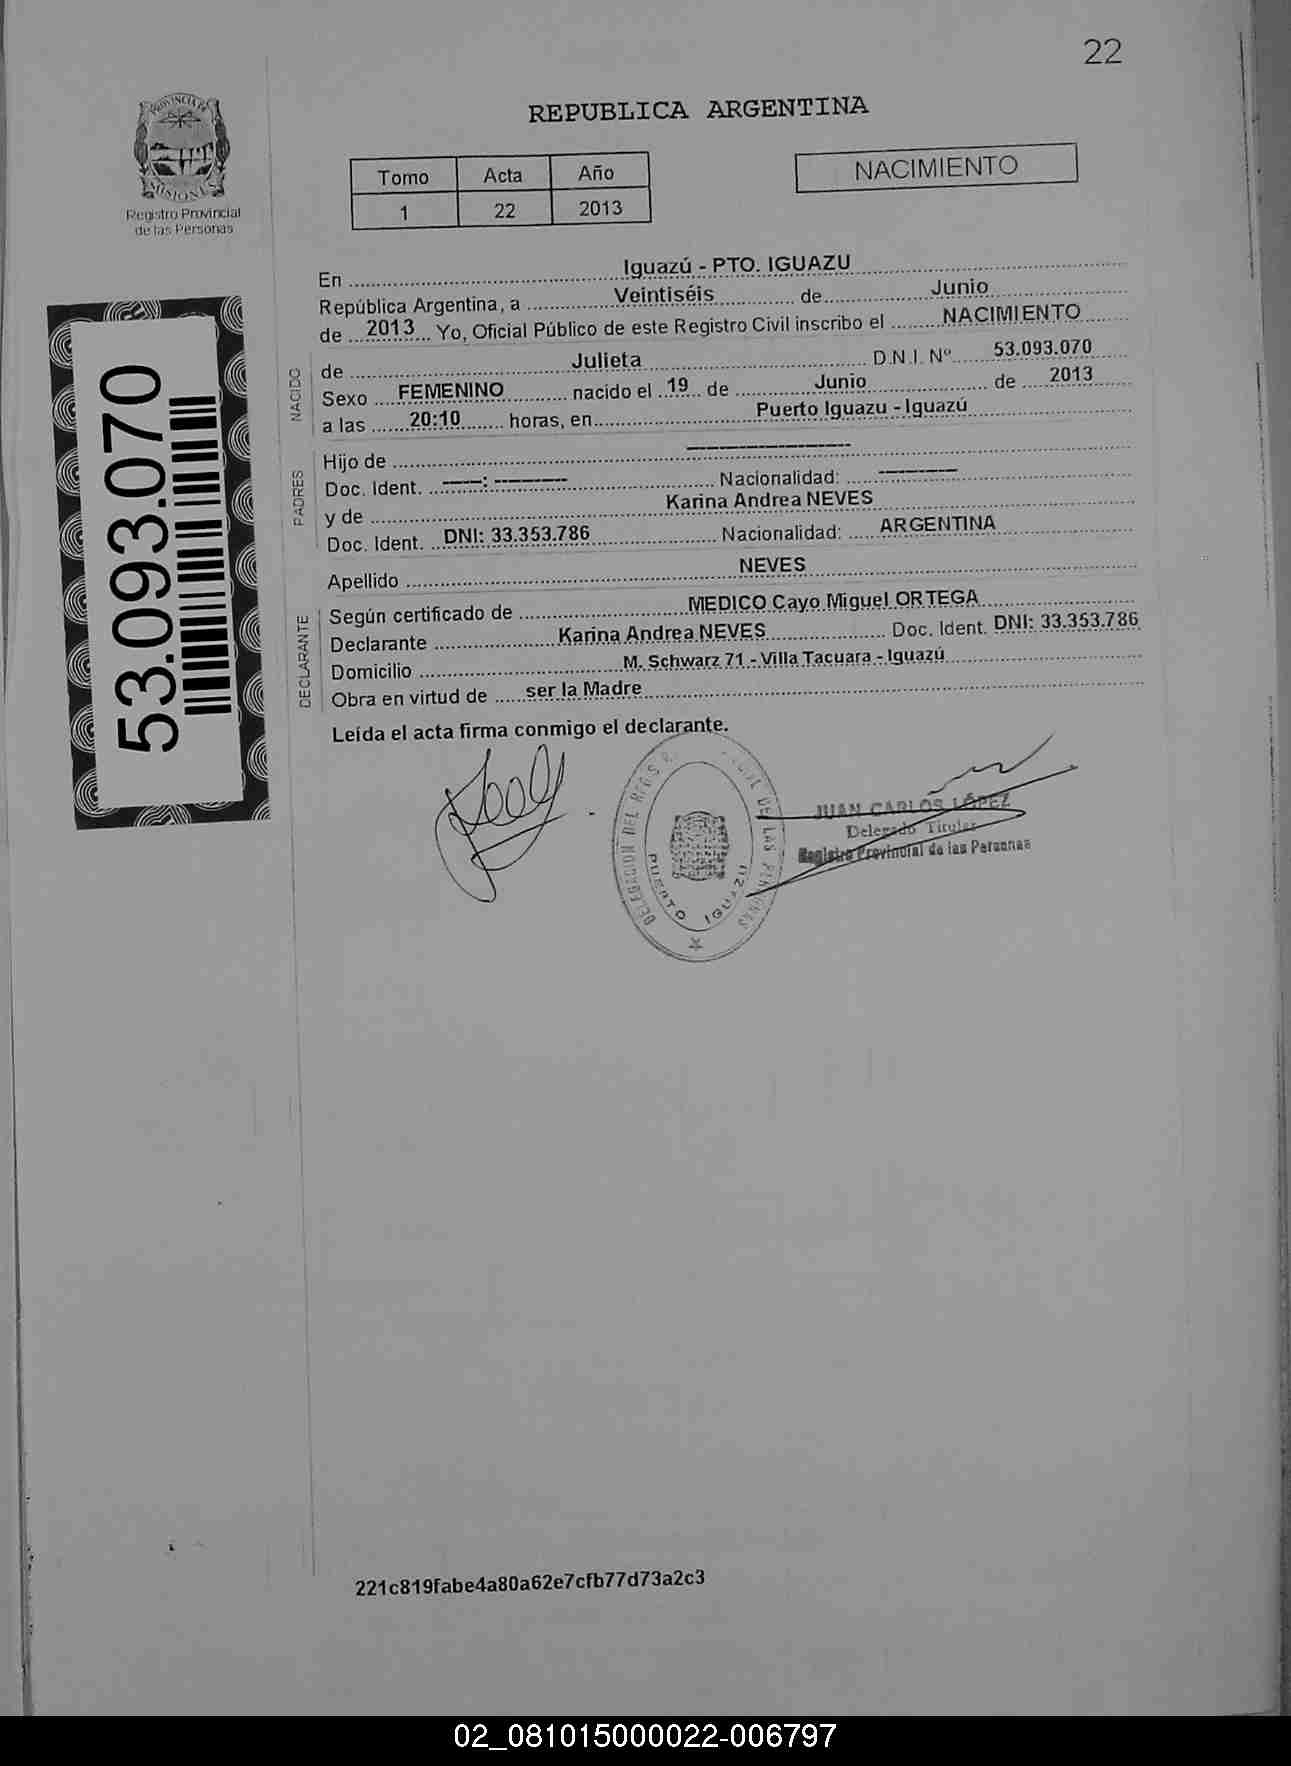 22
PROVINCIA DE
MISIONES
Registro Provincial
de las Personas
REPUBLICA ARGENTINA
Tomo Acta Año
1 22 2013
NACIMIENTO
53.093.070
En Iguazú - PTO. IGUAZU
República Argentina, a Veintiséis de Junio
de 2013 Yo, Oficial Público de este Registro Civil inscribo el NACIMIENTO
NACIDO
de Julieta D.N.I. Nº 53.093.070
Sexo FEMENINO nacido el 19 de Junio de 2013
a las 20:10 horas, en Puerto Iguazu - Iguazú
PADRES
Hijo de --------------------
Doc. Ident. -----: --------- Nacionalidad: ----------
y de Karina Andrea NEVES
Doc. Ident. DNI: 33.353.786 Nacionalidad: ARGENTINA
Apellido NEVES
DECLARANTE
Según certificado de MEDICO Cayo Miguel ORTEGA
Declarante Karina Andrea NEVES Doc. Ident. DNI: 33.353.786
Domicilio M. Schwarz 71 - Villa Tacuara - Iguazú
Obra en virtud de ser la Madre
Leída el acta firma conmigo el declarante.
DELEGACION DEL REG DE LAS PERSONAS
PUERTO IGUAZU
JUAN CARLOS LÓPEZ
Delegado Titular
Registro Provincial de las Personas
221c819fabe4a80a62e7cfb77d73a2c3
02_081015000022-006797